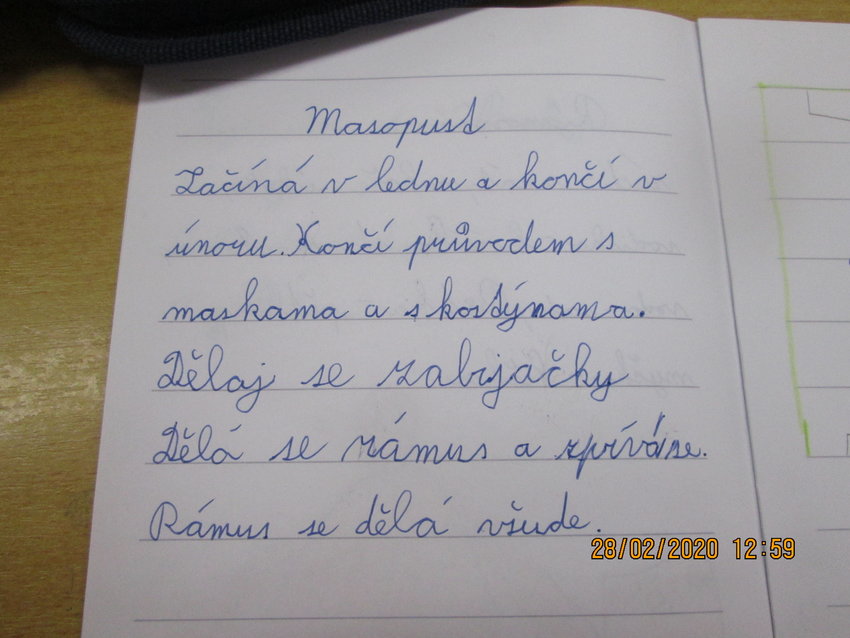 Masopust
Začíná v lednu a končí v
únoru. Končí průvodem s
maskama a s kostýnama.
Dělaj se zabijačky
Dělá se rámus a zpívá se.
Rámus se dělá všude.
28/02/2020 12:59